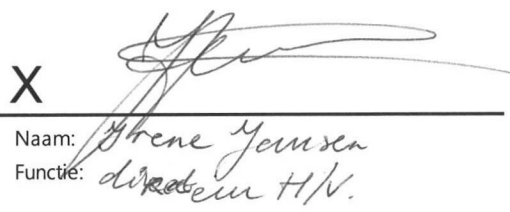 X
Naam: Irene Jansen
Functie: directeur H/V.